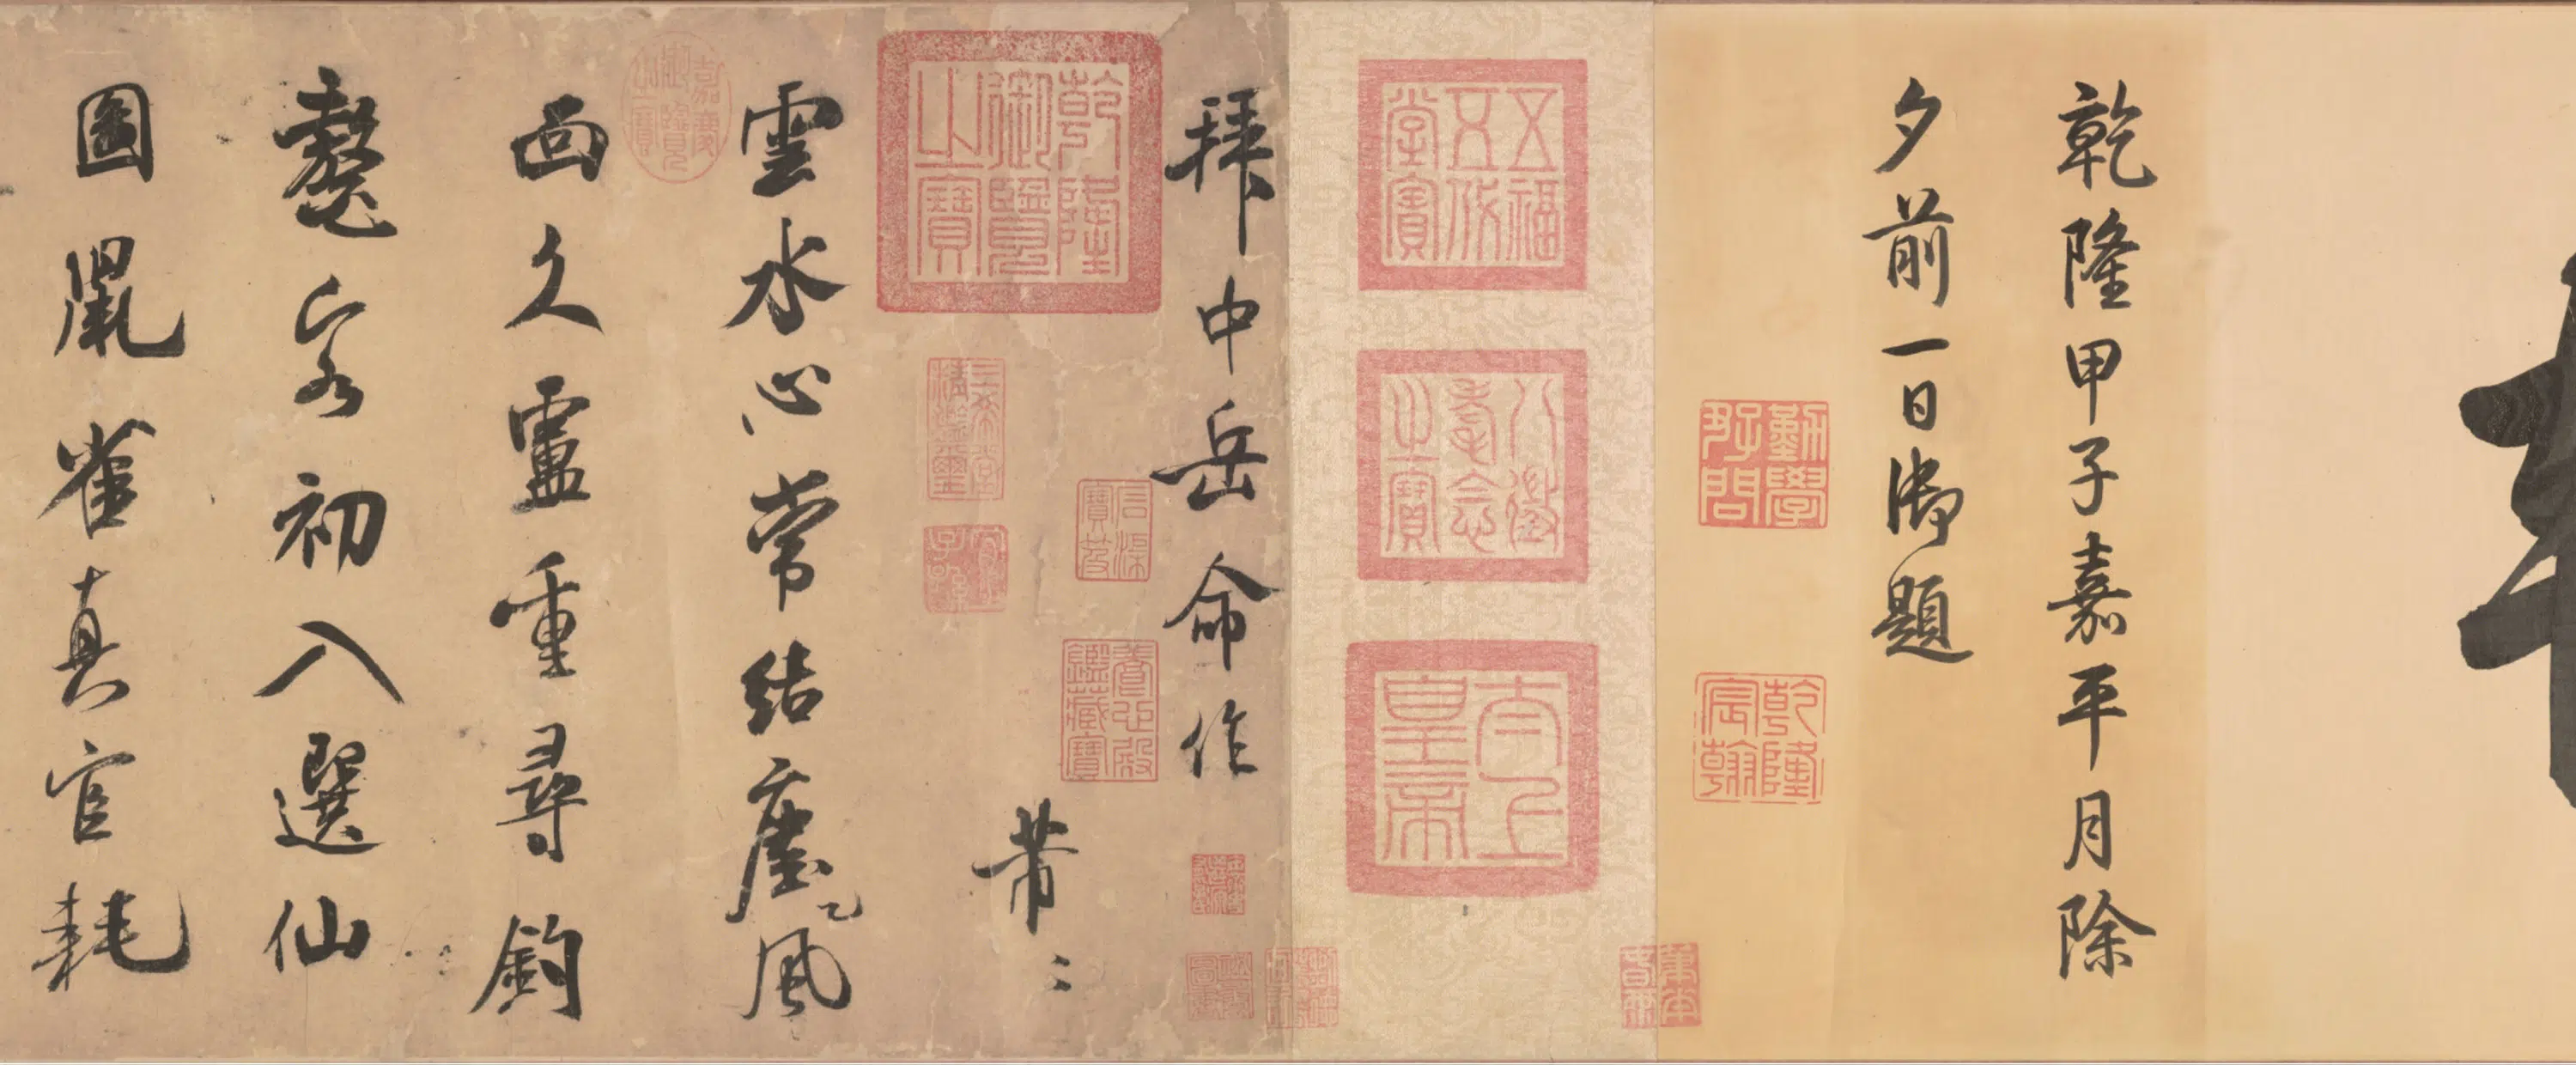 乾隆甲子嘉平月除
夕前一日御題
勤學好問
乾隆宸翰
五福五代堂寶
八徵耄念之寶
太上皇帝
拜中岳命作
芾〻
乾隆御覽之寶
三希堂精鑑璽
宜子孫
石渠寶笈
養心殿鑑藏寶
嘉慶御覽之寶
雲水心常結塵風
面久盧重尋釣
鼇客初入選仙
圖鼠雀真官耗